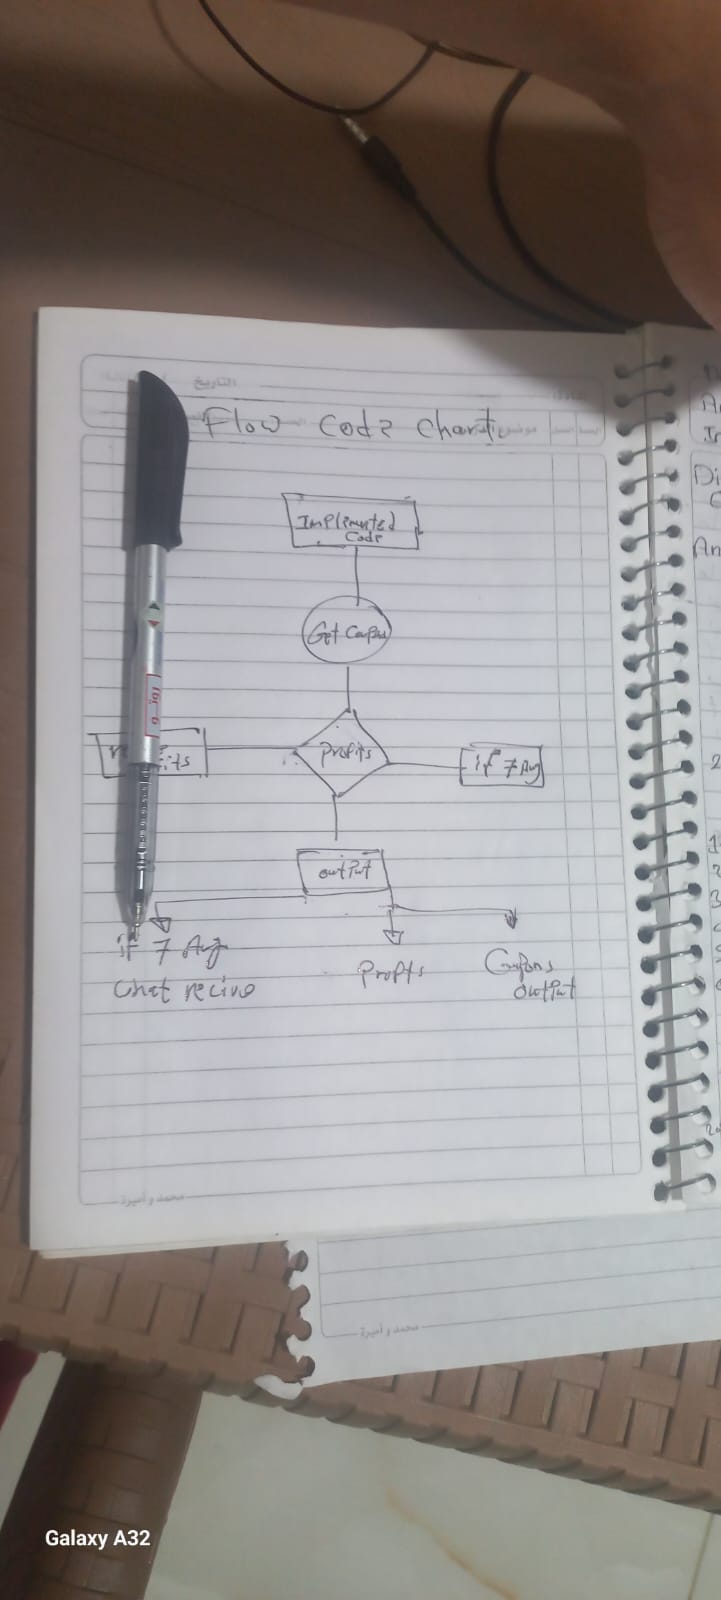 التاريخ
Flow Code Chart
Implemented
Code
Get
Profits
if 7 Avg
output
if 7 Avg
Chat recive
Profts
Coupons
output
محمد و أميرة
محمد و أميرة
Galaxy A32